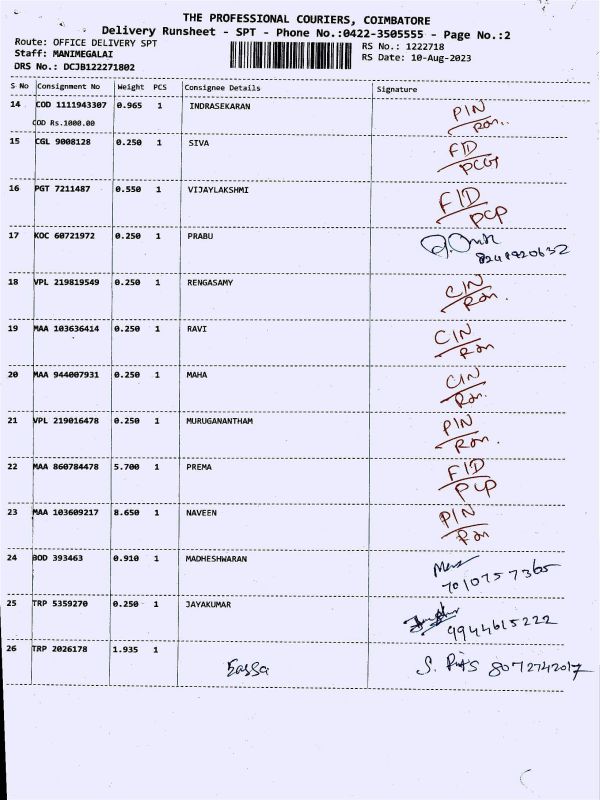 THE PROFESSIONAL COURIERS, COIMBATORE
Delivery Runsheet - SPT - Phone No.:0422-3505555 - Page No.:2
Route: OFFICE DELIVERY SPT
Staff: MANIMEGALAI
DRS No.: DCJB122271802
RS No.: 1222718
RS Date: 10-Aug-2023
S No Consignment No Weight PCS Consignee Details Signature
14 COD 1111943307 0.965 1 INDRASEKARAN PIN
COD Rs.1000.00
15 CGL 9008128 0.250 1 SIVA FID
16 PGT 7211487 0.550 1 VIJAYLAKSHMI FID
PCP
17 KOC 60721972 0.250 1 PRABU
18 VPL 219819549 0.250 1 RENGASAMY CIN
19 MAA 103636414 0.250 1 RAVI CIN
20 MAA 944007931 0.250 1 MAHA CIN
21 VPL 219016478 0.250 1 MURUGANANTHAM PIN
22 MAA 860784478 5.700 1 PREMA FID
PCP
23 MAA 103609217 8.650 1 NAVEEN PIN
24 BOD 393463 0.910 1 MADHESHWARAN
7010757365
25 TRP 5359270 0.250 1 JAYAKUMAR
9944615222
26 TRP 2026178 1.935 1
8072742017